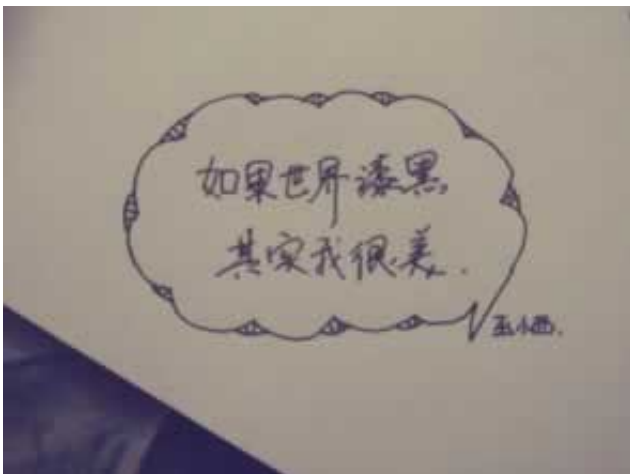 如果世界漆黑
其实我很美.
巫小西.